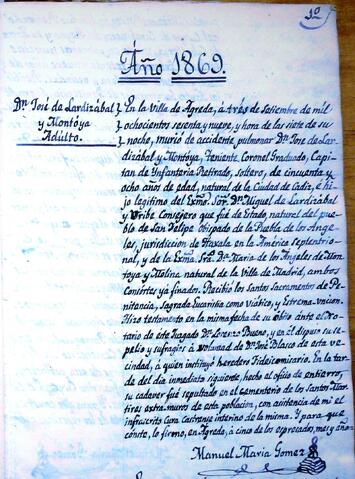 10
Año 1869.
Dn. José de Lardizábal
y Montóya
Adulto.
En la Villa de Agreda, à tres de Setiembre de mil
ochocientos sesenta y nueve, y hora de las siete de su
noche, murió de accidente pulmonar Dn. José de Lar-
dizábal y Montóya, Teniente, Coronel Graduado, Capi-
tan de Infantería Retirado, soltero, de cincuenta y
ocho años de edad, natural de la Ciudad de Cadiz, è hi-
jo legitimo del Exmo. Sor. Dn. Miguel de Lardizábal
y Uribe Consejero que fué de Estado, natural del pue-
blo de San Felipe Obispado de la Puebla de los Ange-
les, jurisdicion de Tlaxala en la América Septentrio-
nal, y de la Exma. Sra. Da. Maria de los Angeles de Mon-
toya y Molina natural de la Villa de Madrid, ambos
Consortes ya finados. Recibió los Santos Sacramentos de Pe-
nitencia, Sagrada Eucaristia como Viático, y Estrema-uncion.
Hizo testamento en la misma fecha de su obito ante el No-
tario de este Juzgado Dn. Lorenzo Bueno, y en él dispuso su se-
pelio y sufragios à voluntad de Dn. José Blasco de esta ve-
cindad, a quien instituyó heredero Fideicomisario. En la tar-
de del dia inmediato siguiente, hecho el oficio de entierro,
su cadaver fué sepultado en el Cementerio de los Santos Mar-
tires extra-muros de esta poblacion, con asistencia de mi el
infrascrito Cura Castrense interino de la misma. Y para que
conste, lo firmo, en Agreda, à cinco de los espresados, mes y año-
Manuel Maria Gomez